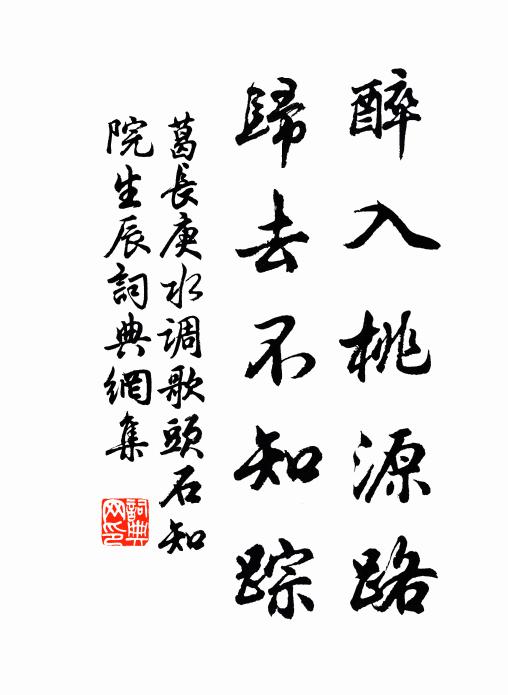 醉入桃源路
歸去不知踪
葛長庚水调歌頭石知
院生辰詞典網集
詞典
网印